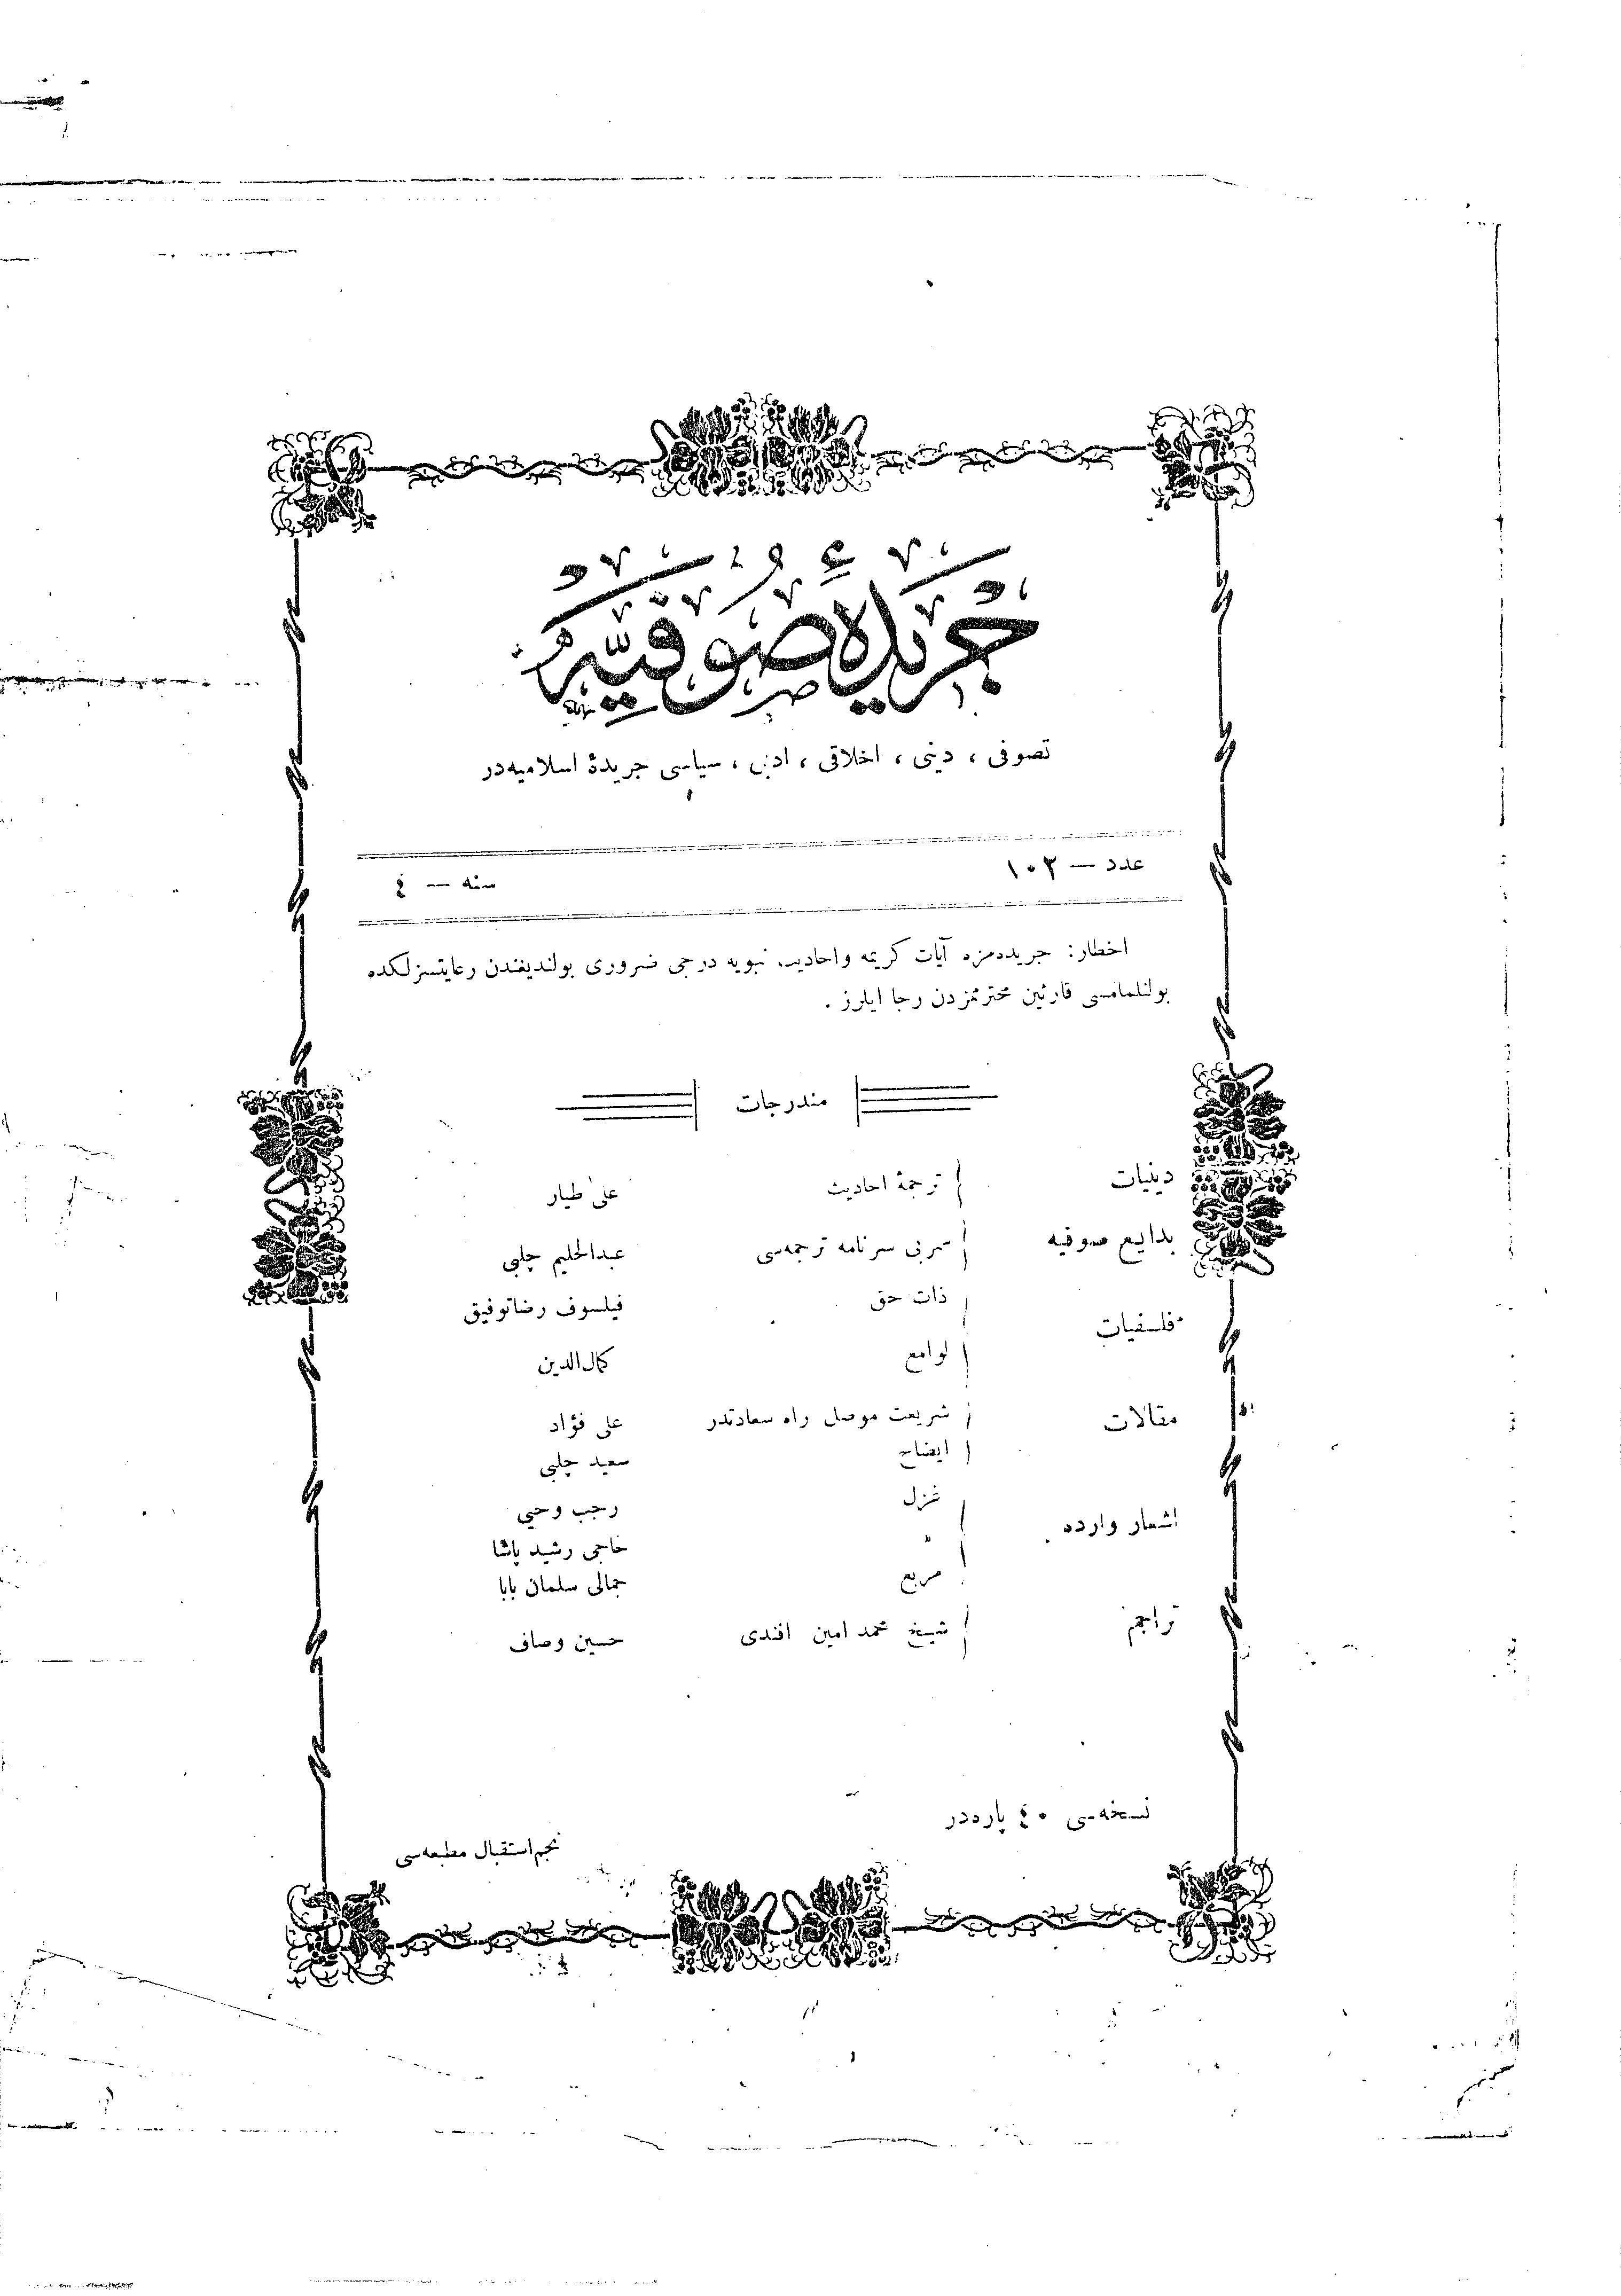 جريدهٔ صوفيه
تصوفى ، دينى ، اخلاقى ، ادبى ، سياسى جريدهٔ اسلاميه‌در
عدد — ١٠٣
سنه — ٤
اخطار: جريده‌مزه آيات كريمه و احاديث نبويه درجى ضرورى بولنديغندن رعايتسزلكده
بولنلمامسى قارئين محترمه‌مزدن رجا ايلرز .
مندرجات
دينيات ترجمهٔ احاديث على طيار
بدايع صوفيه سرنامه ترجمه‌سى عبدالحليم چلبى
فلسفيات ذات حق فيلسوف رضا توفيق
لوامع كمال‌الدين
مقالات شريعت موصل راه سعادتدر على فؤاد
ايضاح سعيد چلبى
اشعار وارده غزل رجب وحيي
» حاجى رشيد پاشا
مربع جمالى سلمان بابا
تراجم شيخ محمد امين افندى حسين وصاف
نسخه‌سى ٤٠ پاره‌در
نجم استقبال مطبعه‌سى